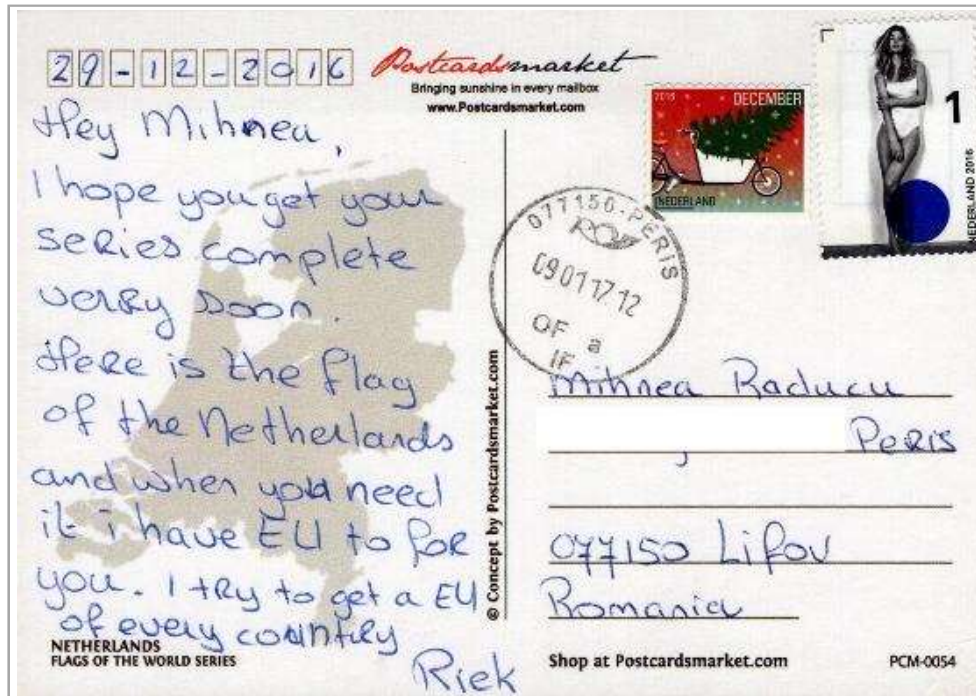 29-12-2016
Postcardsmarket
Bringing sunshine in every mailbox
www.Postcardsmarket.com
Hey Mihnea,
I hope you get your
series complete
verry soon.
Here is the flag
of the Netherlands
and when you need
it i have EU to for
you. I try to get a EU
of every country
Riek
NETHERLANDS
FLAGS OF THE WORLD SERIES
© Concept by Postcardsmarket.com
2016 DECEMBER
NEDERLAND
1
NEDERLAND 2016
077150-PERIS
09 01 17 12
OF a
IF
Mihnea Raducu
Peris
077150 Lifov
Romania
Shop at Postcardsmarket.com
PCM-0054